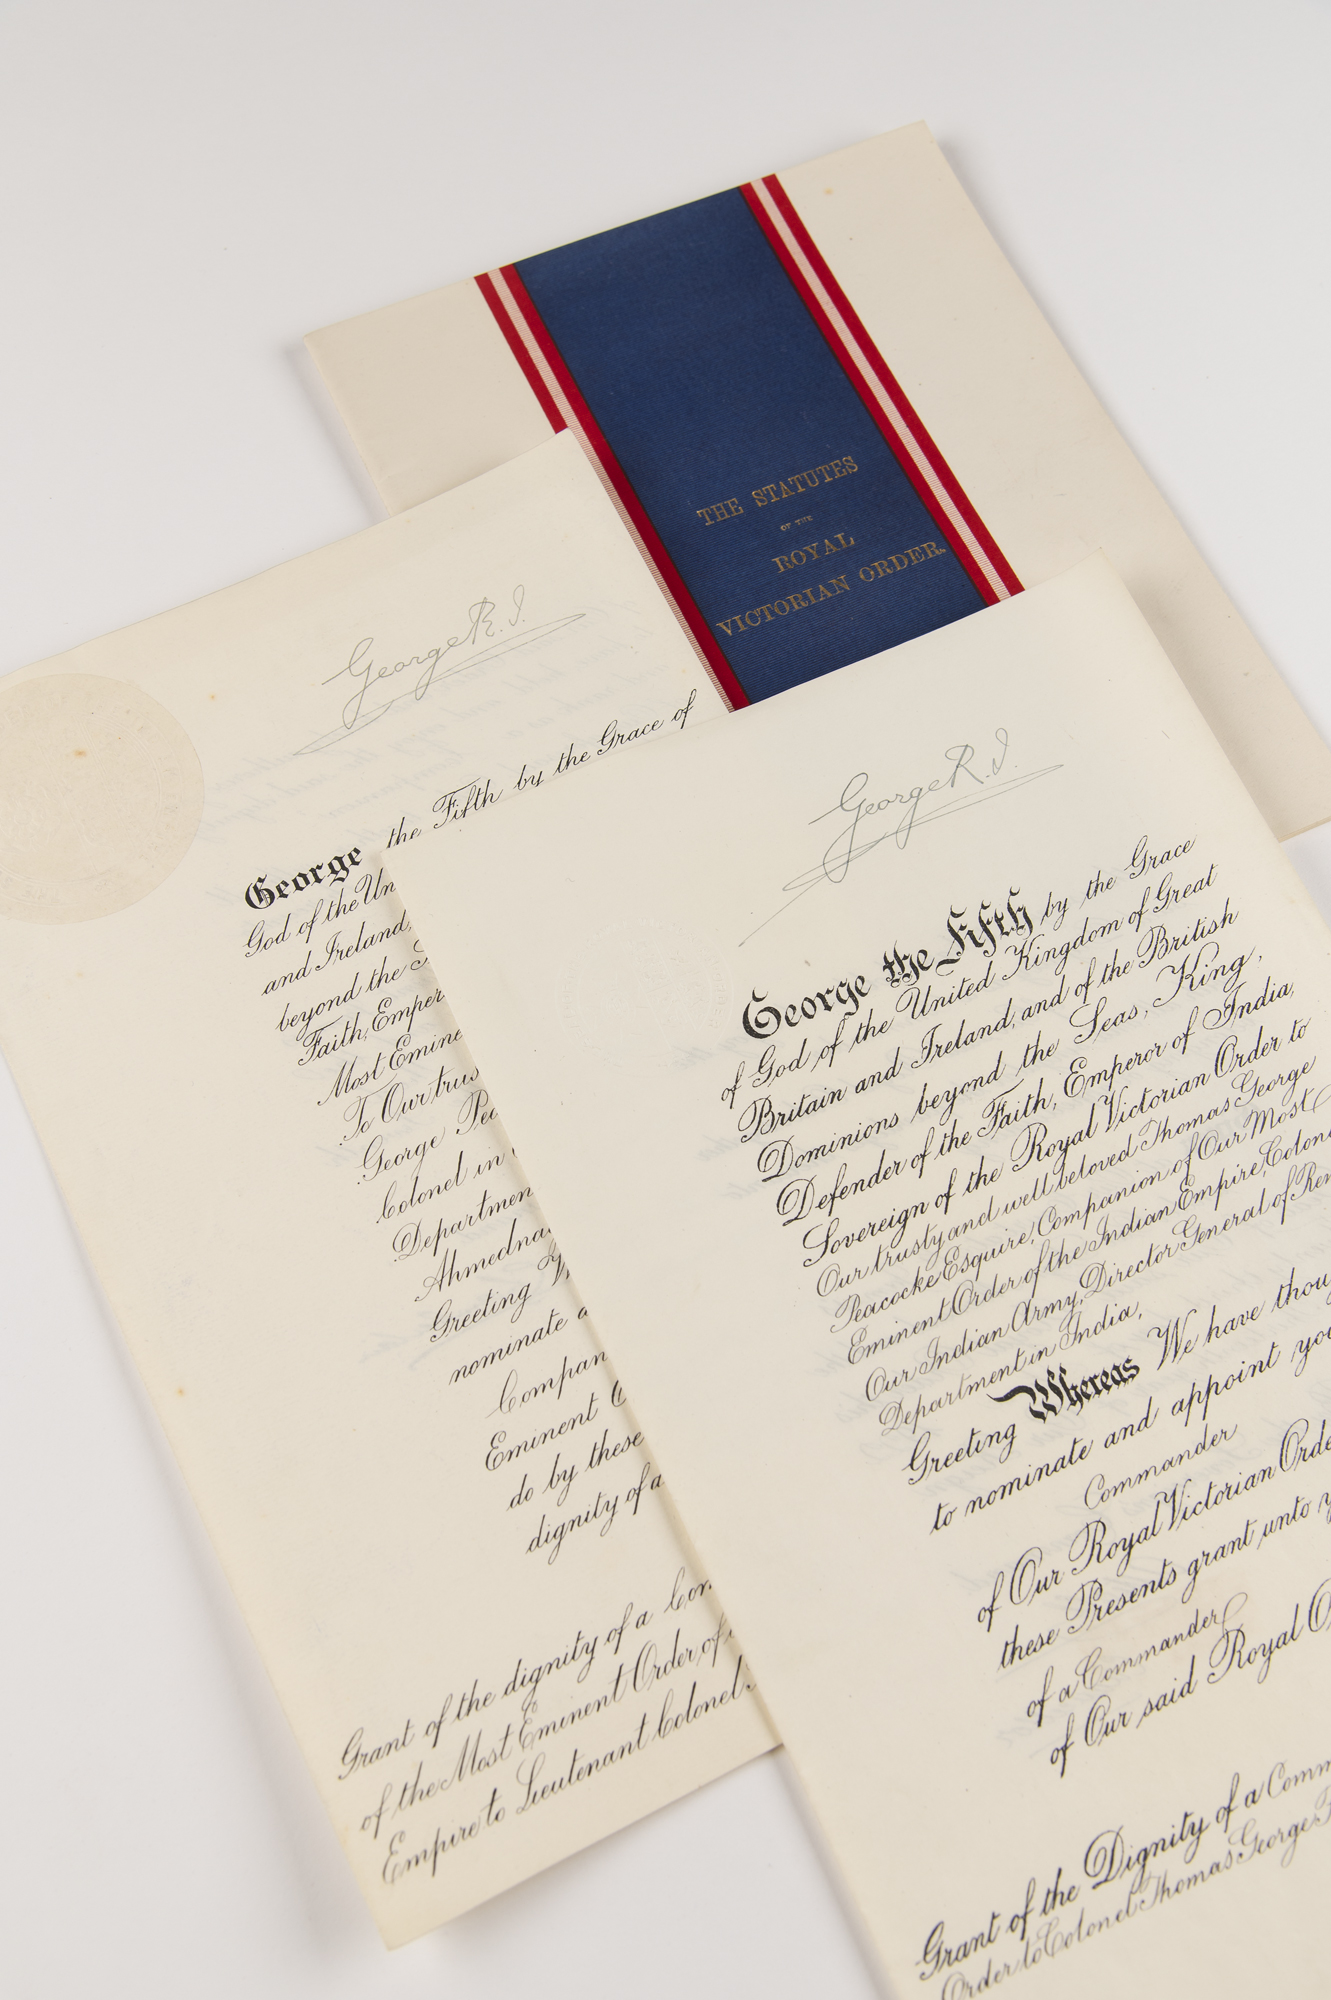 THE STATUTES
OF THE
ROYAL
VICTORIAN ORDER.
George R.I.
George the Fifth by the Grace of
God of the Un
and Ireland,
beyond the
Faith, Emper
Most Emine
To Our trus
George Pea
Colonel in
Departmen
Ahmedna
Greeting
nominate a
Compan
Eminent
do by these
dignity of a
Grant of the dignity of a Com
of the Most Eminent Order of
Empire to Lieutenant Colonel
George R.I.
George the Fifth by the Grace
of God of the United Kingdom of Great
Britain and Ireland, and of the British
Dominions beyond the Seas, King,
Defender of the Faith, Emperor of India,
Sovereign of the Royal Victorian Order to
Our trusty and well beloved Thomas George
Peacocke Esquire, Companion of Our Most
Eminent Order of the Indian Empire, Colon
Our Indian Army, Director General of Rem
Department in India,
Greeting Whereas We have thou
to nominate and appoint you
Commander
of Our Royal Victorian Orde
these Presents grant unto y
of a Commander
of Our said Royal O
Grant of the Dignity of a Comm
Order to Colonel Thomas George